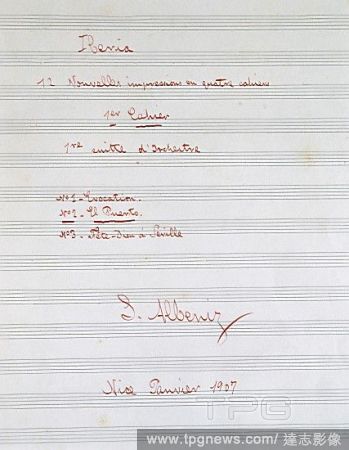 Iberia
12 Nouvelles impressions en quatre cahiers
1er Cahier
1re suitte d'Orchestre
No1 - Evocation.
No2 - El Puerto.
No3 - Fête-Dieu à Séville
I. Albeniz
Nice Janvier 1907
TPG
www.tpgnews.com / 達志影像